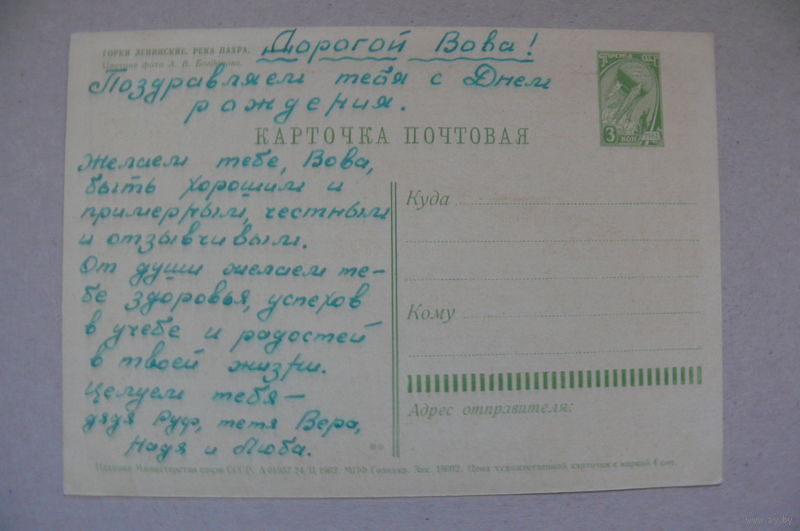 ГОРКИ ЛЕНИНСКИЕ. РЕКА ПАХРА.
Цветное фото А. В. Бондарева.
Дорогой Вова!
Поздравляем тебя с Днем
рождения.
3 КОП
КАРТОЧКА ПОЧТОВАЯ
Желаем тебе, Вова,
быть хорошим и
примерным, честным
и отзывчивым.
От души желаем те-
бе здоровья, успехов
в учебе и радостей
в твоей жизни.
Целуем тебя —
дядя Руф, тетя Вера,
Надя и Люба.
Куда
Кому
Адрес отправителя:
Издание Министерства связи СССР. А 01957 24/II 1962. МПФ Гознака. Зак. Цена художественной карточки с маркой 4 коп.
www.ay.by